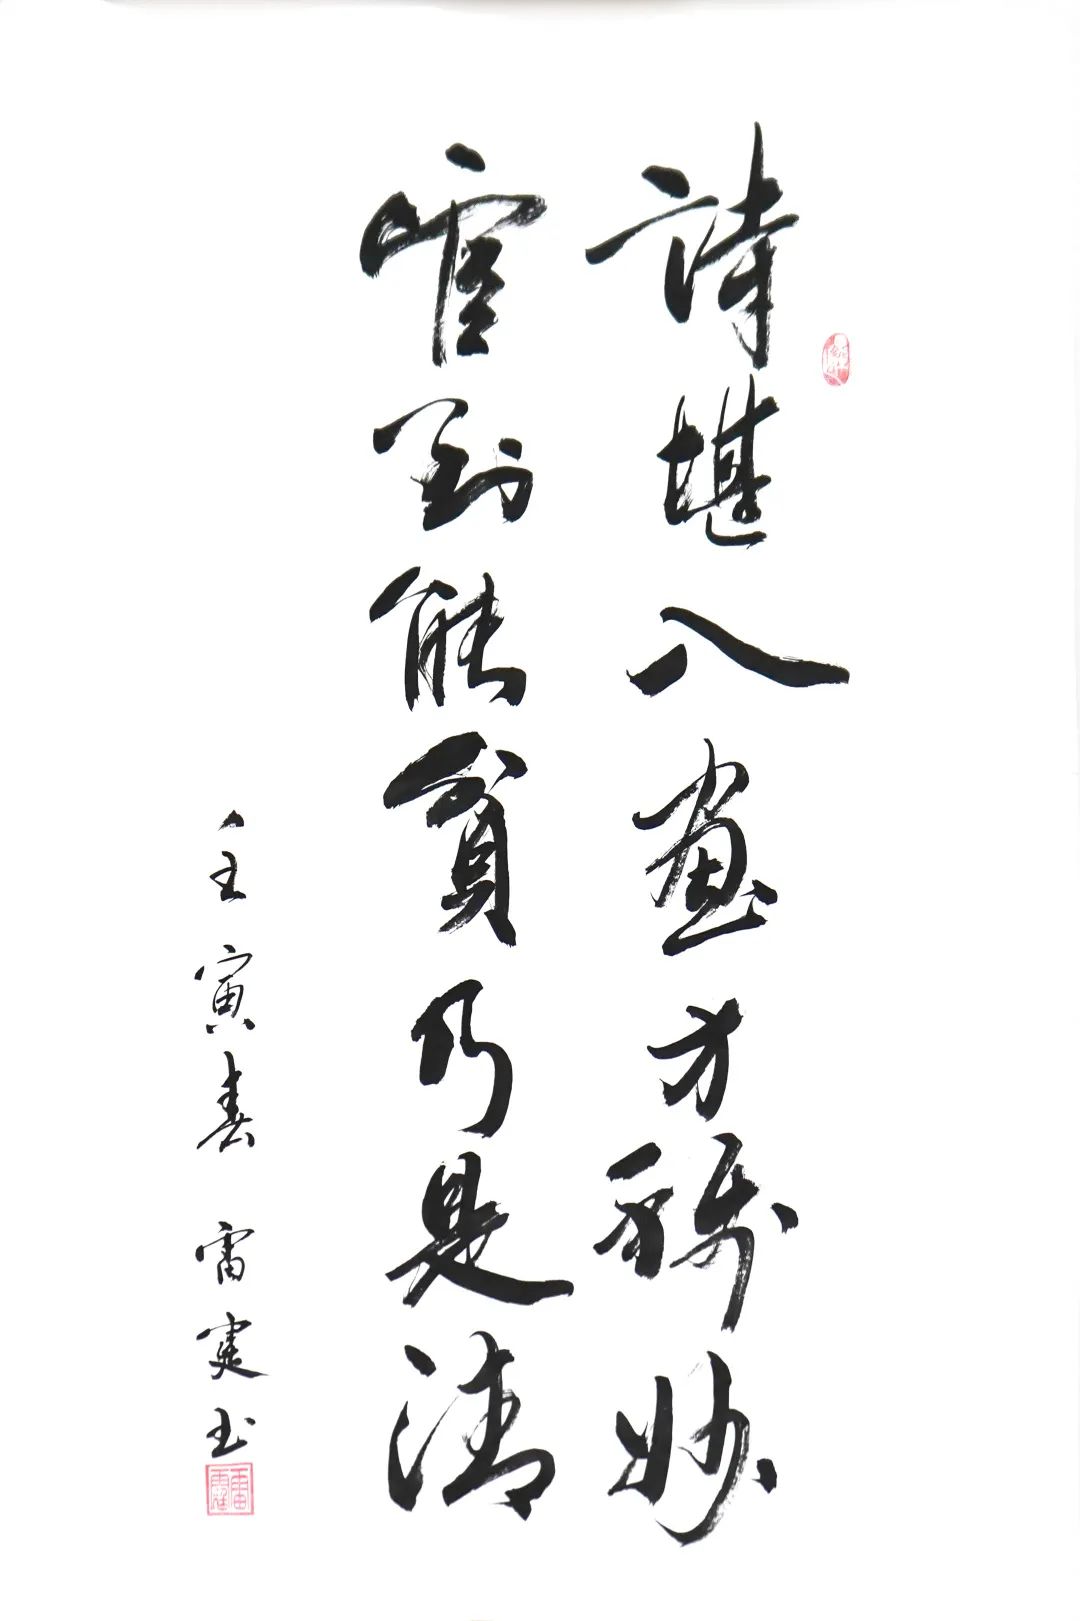 詩堪入畫方稱妙
官到能貧乃是清
壬寅春 雷霆书